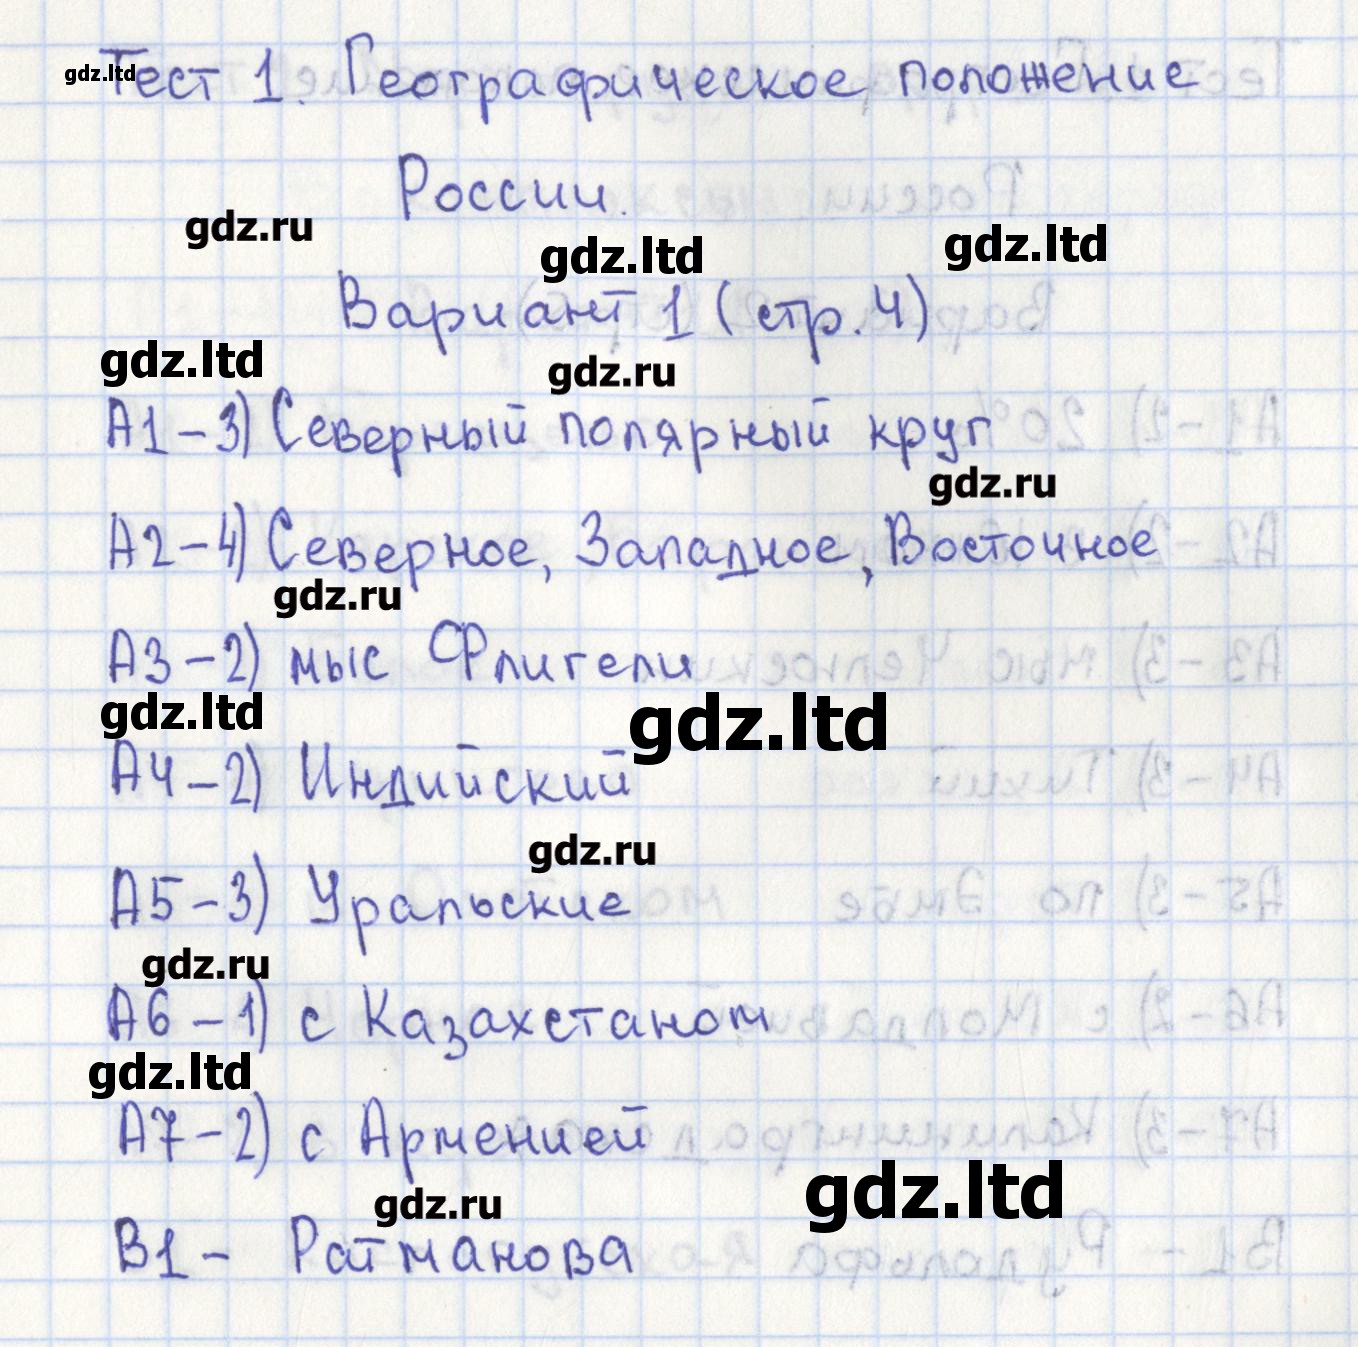 Тест 1. Географическое положение
gdz.ltd
России.
gdz.ru
gdz.ltd
gdz.ltd
Вариант 1 (стр. 4)
gdz.ltd
gdz.ru
А1-3) Северный полярный круг
gdz.ru
А2-4) Северное, Западное, Восточное
gdz.ru
А3-2) мыс Флигели
gdz.ltd
gdz.ltd
А4-2) Индийский
gdz.ru
А5-3) Уральские
gdz.ru
А6-1) с Казахстаном
gdz.ltd
А7-2) с Арменией
gdz.ltd
gdz.ru
В1- Ратманова